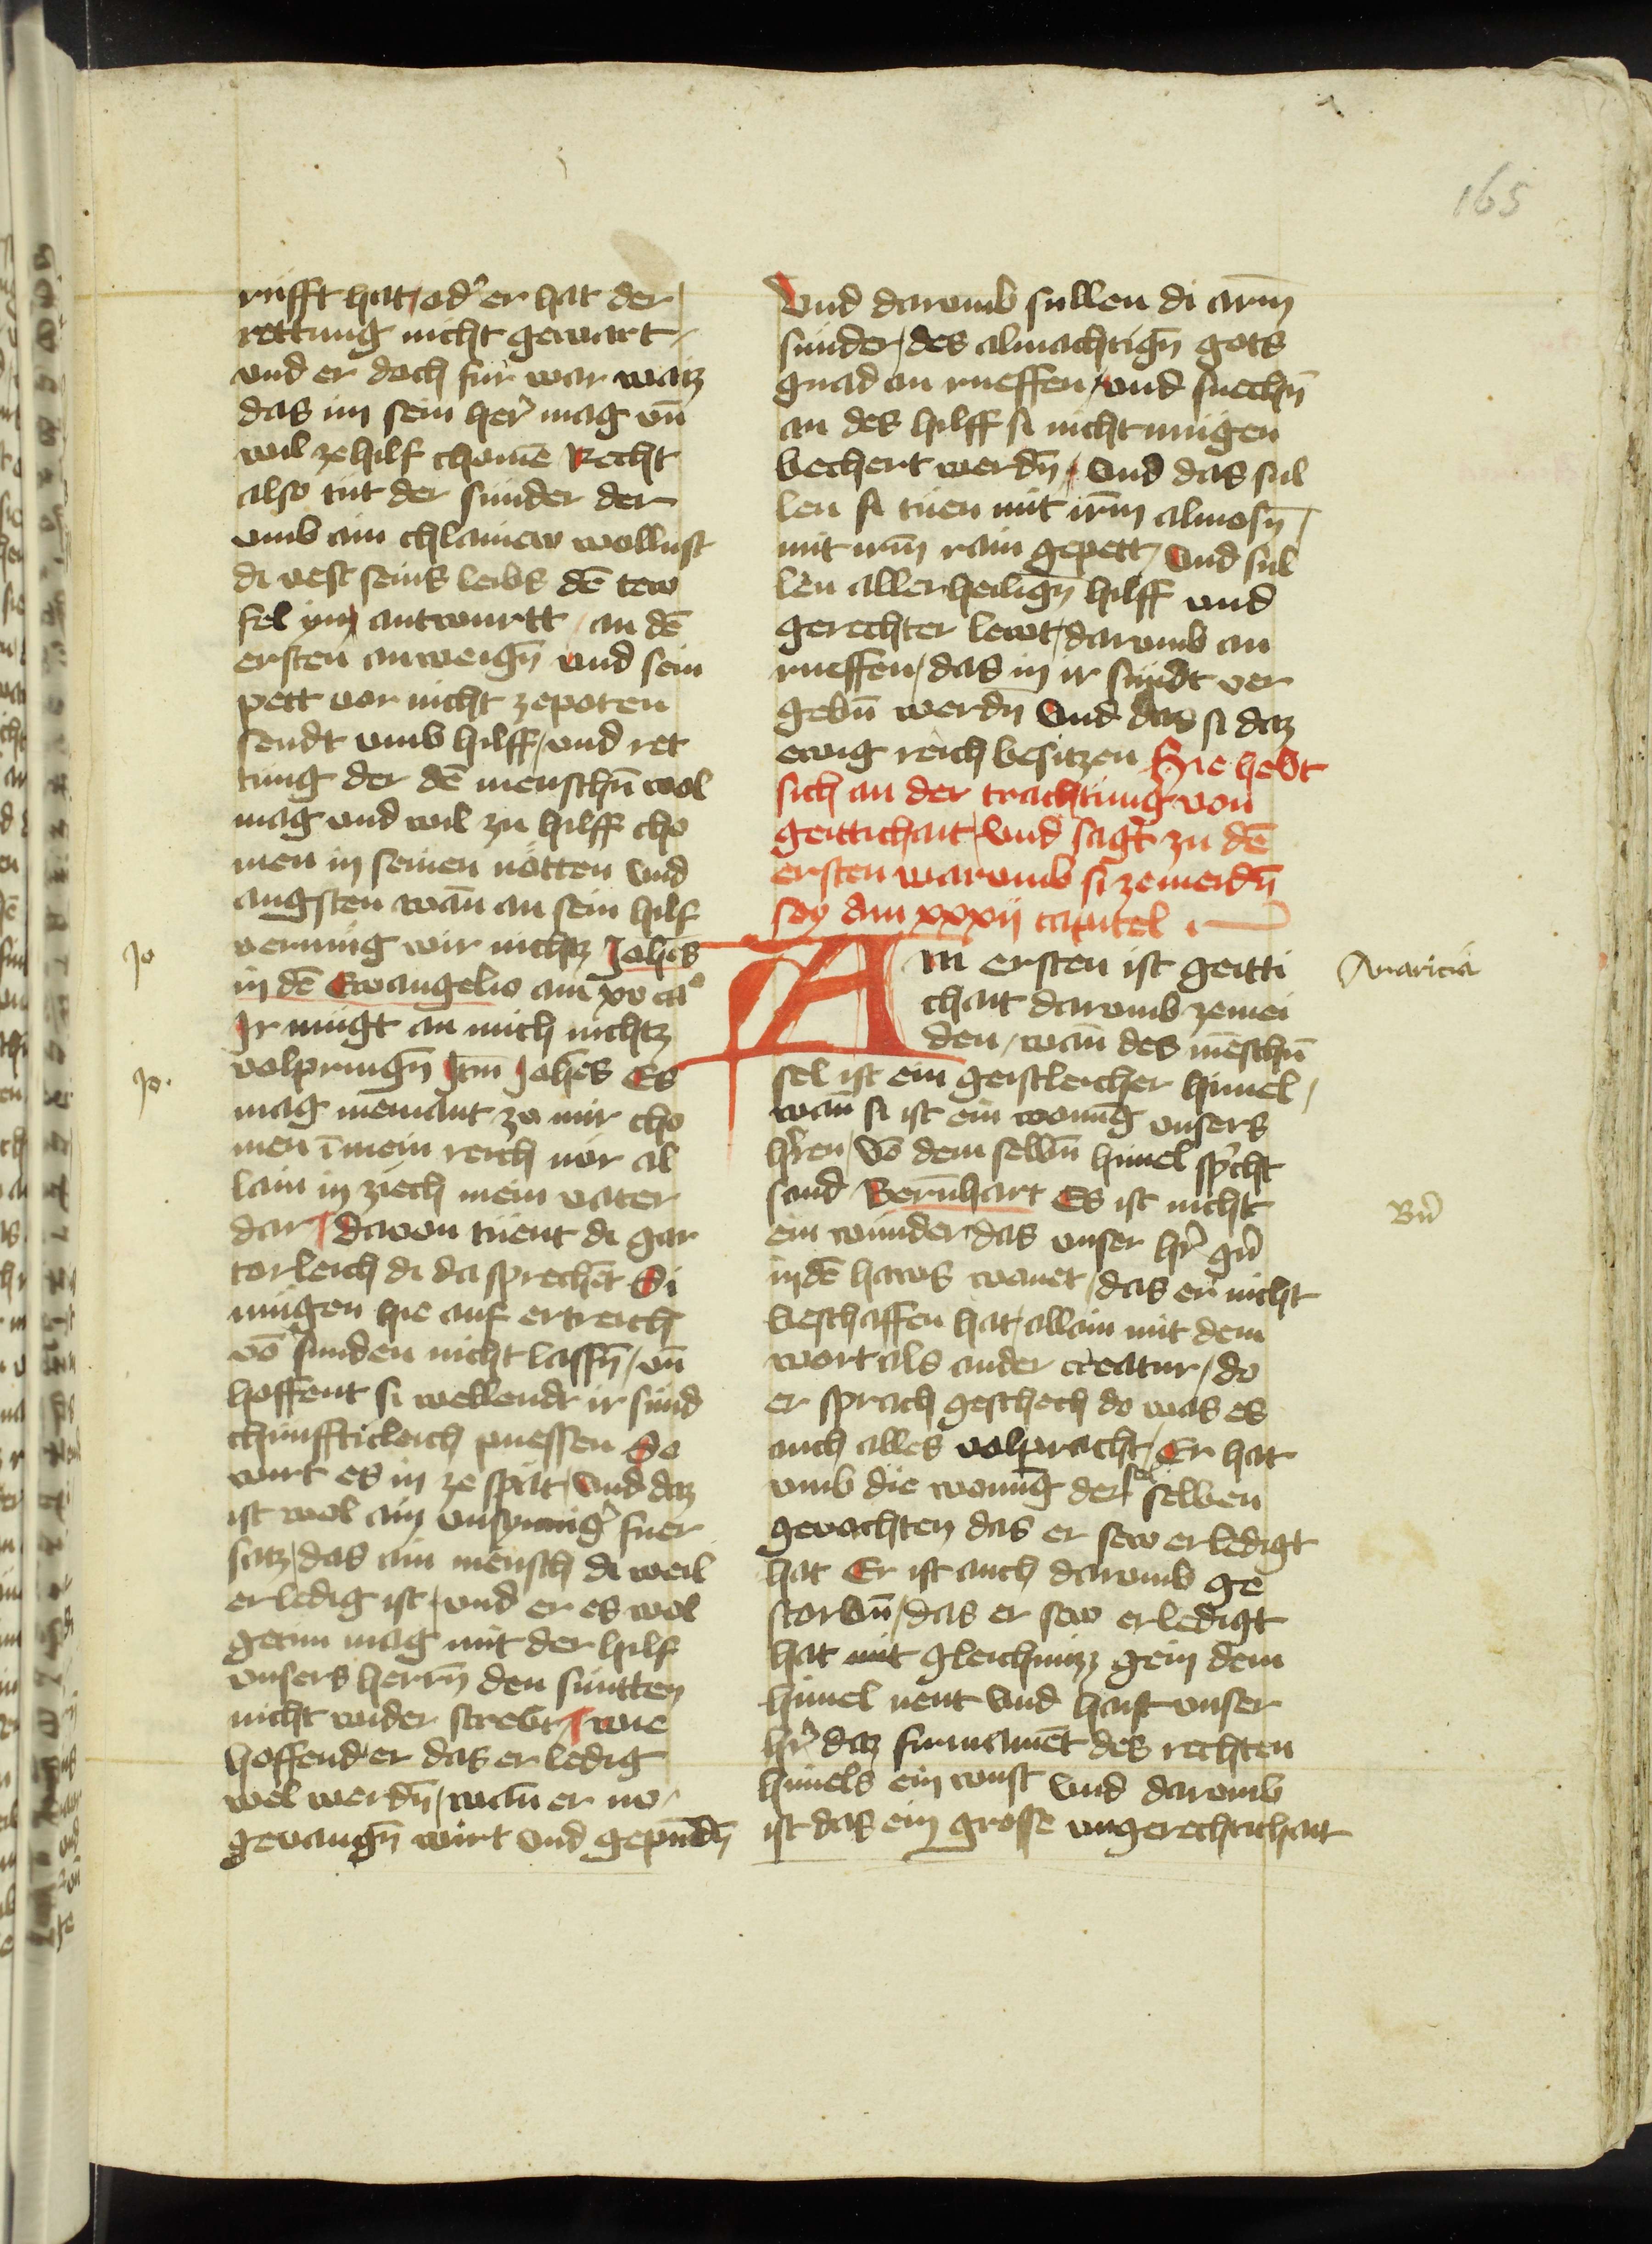 165
rüfft hat / od' er hat der
rettung nicht gewart /
vnd er doch für war waiz
das im sein her' mag vn̄
wil ze hilf chomē Recht
also tüt der sünder der
vmb ain chlainew wollust
di vest seins leibs dē tew
fel yn antwurtt / an dē
ersten anweign̄ vnd sein
pett vor nicht ze poten
sendt vmb hilff / vnd ret
tung der dē menschn̄ wol
mag vnd wil zu hilff cho
men in seinen nötten vnd
angsten wan̄ an sein hilf
vermüg wir nichtz Joh̄es
in dē Ewangelio am xv ca°
Ir mügt an mich nichtz
volpringn̄ Itm̄ Joh̄es Es
mag niemant ze mir cho
men ī mein reich nür al
lain in ziech mein vater
dar / davon tüent di gar
torleich di da sprechēt Si
mügen hie auf ertreich
vō sünden nicht lassn̄ / vn̄
hoffent si wellendt ir sünd
chünfticleich puessen So
wirt es in ze spät / Vnd daz
ist wol ain vnsynnig' fuer
satz / das ain mensch di weil
er ledig ist / vnd er es wol
getun mag mit der hilf
vnsers herrn̄ den süntten
nicht wider strebt / wie
hoffend er das er ledig
wel werdn̄ / wan̄ er nv
gevangn̄ wirt vnd gepundn̄
Jo
Jo.
Vnd darvmb sullen di arm̄
sünder / des almachtign̄ gots
gnad an rueffen / vnd suechn̄
an des hilff si nicht mügen
bechert werdn̄ / Vnd das sul
len si tüen mit irm̄ almosn̄ /
mit irm̄ rain gepett / Vnd sul
len aller heilign̄ hilff vnd
gerechter lewt / darvmb an
rueffen / das in ir sündt ver
gebn̄ werdn̄ Vnd das si daz
ewig reich besitzen Hie hebt
sich an der trachtung von
geittichait / Vnd sagt zu dē
ersten warvmb si ze meidn̄
sey Am xxxii capitel
Am ersten ist geitti
chait darvmb ze mei
den / wan̄ des mēschn̄
sel ist ein geistleicher himel /
wan̄ si ist ein wonūg vnsers
h'ren / Vō dem selbn̄ himel sp'cht
sand Bern̄hart Es ist nicht
ein wunder das vnser h'r gn'
in dē haws wanet / das er nicht
beschaffen hat / allain mit dem
wort als ander creatur / do
er sprach geschech do was es
auch alles volpracht / Er hat
vmb die wonūg der selben
gevochten das er sew erledigt
hat Er ist auch darvmb ge
storbn̄ / das er sew erledigt
hat mit gleichnüzz gein dem
himel nent Vnd haist vnser
h'r daz firmamēt des rechten
himels ein wust Vnd darvmb
ist das ein grosse vngerechtichait
Avaricia
Bn'